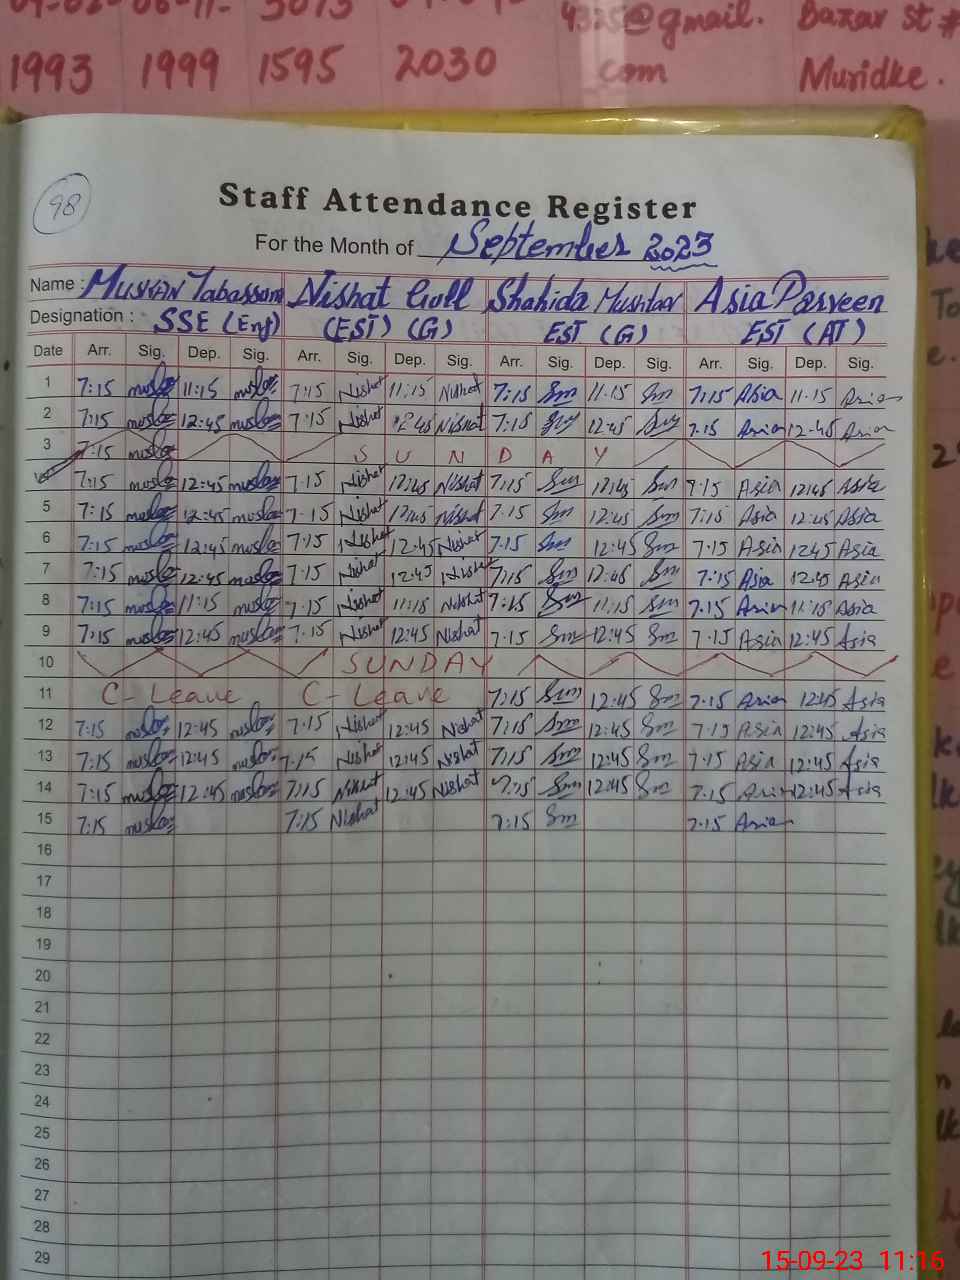 4325@gmail. Bazar st #
1993 1999 1595 2030 com Muridke.
98
Staff Attendance Register
For the Month of September 2023
Name : Muskan Tabassam Nishat Gull Shahida Mushtaq Asia Parveen
Designation : SSE (Eng) (EST) (G) EST (G) EST (AT)
Date Arr. Sig. Dep. Sig. Arr. Sig. Dep. Sig. Arr. Sig. Dep. Sig. Arr. Sig. Dep. Sig.
1 7:15 11:15 7:15 Nishat 11:15 Nishat 7:15 Sm 11:15 Sm 7:15 Asia 11:15 Asia
2 7:15 12:45 7:15 Nishat 12:45 Nishat 7:15 12:45 7:15 Asia 12:45 Asia
3 7:15 SUNDAY
7:15 12:45 7:15 Nishat 12:45 Nishat 7:15 Sm 12:45 Sm 7:15 Asia 12:45 Asia
5 7:15 12:45 7:15 Nishat 12:45 Nishat 7:15 Sm 12:45 Sm 7:15 Asia 12:45 Asia
6 7:15 12:45 7:15 Nishat 12:45 Nishat 7:15 Sm 12:45 Sm 7:15 Asia 12:45 Asia
7 7:15 12:45 7:15 Nishat 12:45 Nishat 7:15 Sm 12:45 Sm 7:15 Asia 12:45 Asia
8 7:15 11:15 7:15 Nishat 11:15 Nishat 7:15 Sm 11:15 Sm 7:15 Asia 11:15 Asia
9 7:15 12:45 7:15 Nishat 12:45 Nishat 7:15 Sm 12:45 Sm 7:15 Asia 12:45 Asia
10 SUNDAY
11 C-Leave C-Leave 7:15 Sm 12:45 Sm 7:15 Asia 12:45 Asia
12 7:15 12:45 7:15 Nishat 12:45 Nishat 7:15 Sm 12:45 Sm 7:15 Asia 12:45 Asia
13 7:15 12:45 7:15 Nishat 12:45 Nishat 7:15 Sm 12:45 Sm 7:15 Asia 12:45 Asia
14 7:15 12:45 7:15 Nishat 12:45 Nishat 7:15 Sm 12:45 Sm 7:15 Asia 12:45 Asia
15 7:15 7:15 Nishat 7:15 Sm 7:15 Asia
16
17
18
19
20
21
22
23
24
25
26
27
28
29
15-09-23 11:16